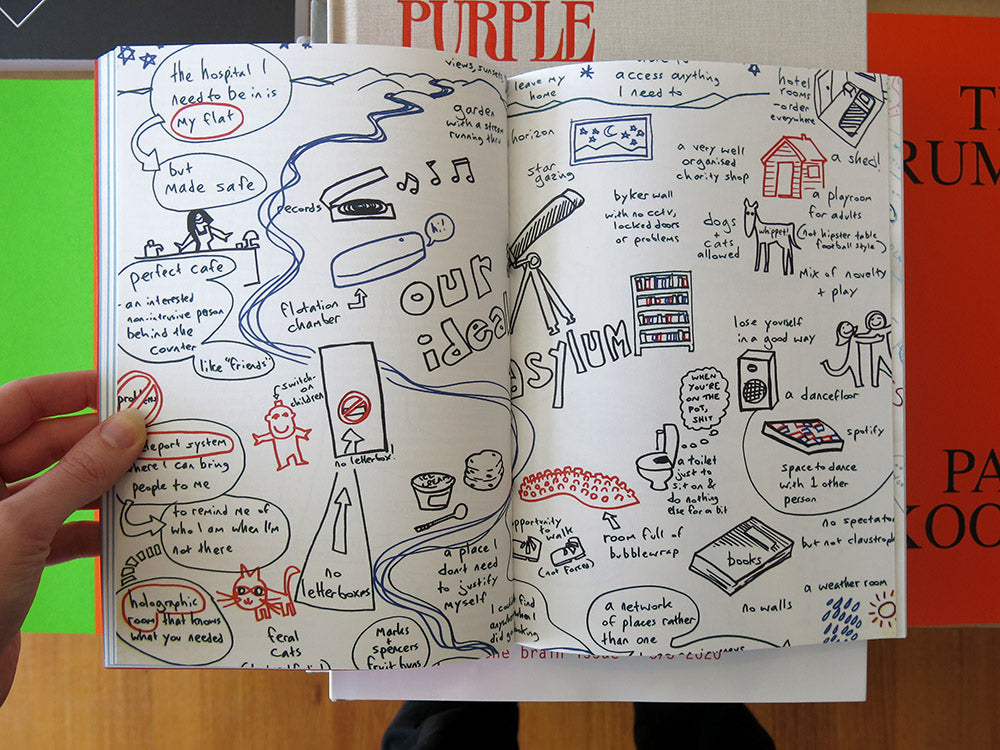 PURPLE
the hospital I
need to be in is
my flat
but
made safe
perfect cafe
- an interested
non-intrusive person
behind the
counter
like "friends"
problems
teleport system
where I can bring
people to me
to remind me of
who I am when I'm
not there
holographic
room that knows
what you needed
views, sunsets
garden
with a stream
running thru
records
hi!
flotation
chamber
our
ideal
asylum
switch-
on
children
no letterbox!
no
letterboxes
ICE
CREAM
feral
cats
a place I
don't need
to justify
myself
Marks
spencers
fruit buns
leave my
home
access anything
I need to
hotel
rooms
- order
everywhere
horizon
star
gazing
a very well
organised
charity shop
a shed!
byker wall
with no cctv,
locked doors
or problems
dogs
+
cats
allowed
whippet
a playroom
for adults
(not hipster table
football style)
Mix of novelty
+ play
lose yourself
in a good way
WHEN
YOU'RE
ON THE
POT,
SHIT
a dancefloor
spotify
space to dance
with 1 other
person
a toilet
just to
sit on &
do nothing
else for a bit
opportunity
to
walk
(not forced)
room full of
bubblewrap
books
no spectator
but not claustroph
a weather room
no walls
a network
of places rather
than one
find
the brain issue
2020